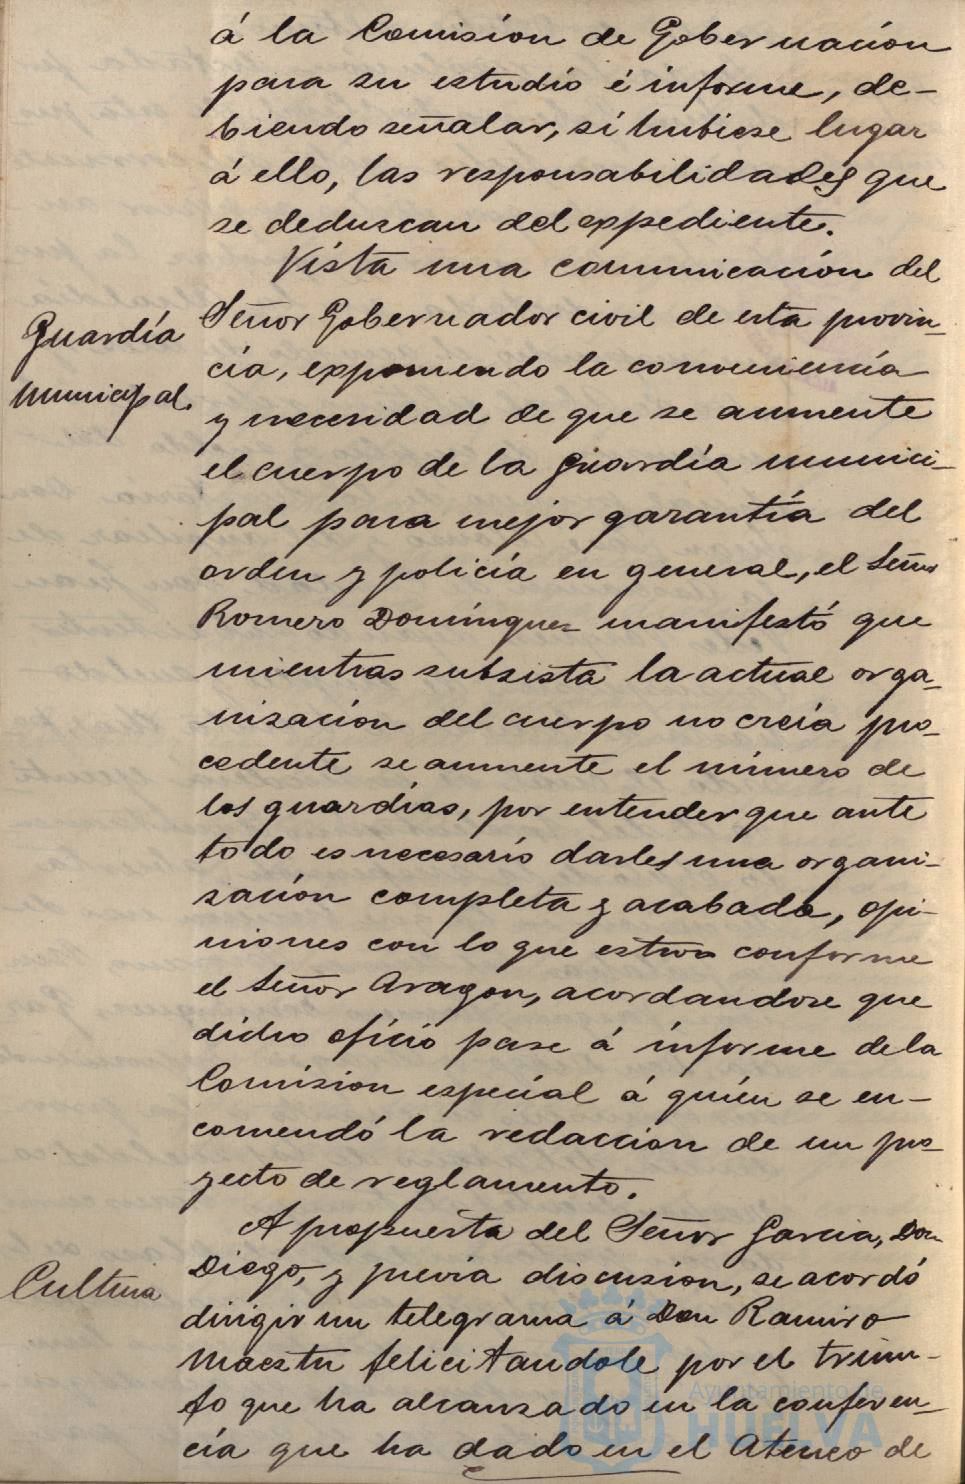 á la Comisión de Gobernación
para su estudio é informe, de-
biendo señalar, si hubiese lugar
á ello, las responsabilidades que
se deduzcan del expediente.
Vista una comunicación del
Guardia
Municipal.
Señor Gobernador civil de esta provin-
cia, exponiendo la conveniencia
y necesidad de que se aumente
el cuerpo de la guardia munici-
pal para mejor garantía del
orden y policía en general, el Señor
Romero Domínguez manifestó que
mientras subsista la actual orga-
nización del cuerpo no creía pro-
cedente se aumente el número de
los guardias, por entender que ante
todo es necesario darles una organi-
zación completa y acabada, opi-
niones con lo que estuvo conforme
el Señor Aragon, acordandose que
dicho oficio pase á informe de la
Comision especial á quién se en-
comendó la redaccion de un pro-
yecto de reglamento.
A propuesta del Señor Garcia, Don
Cultura
Diego, y previa discusion, se acordó
dirigir un telegrama á Don Ramiro
Maeztu felicitandole por el triun-
fo que ha alcanzado en la conferen-
cia que ha dado en el Ateneo de
Ayuntamiento de
HUELVA